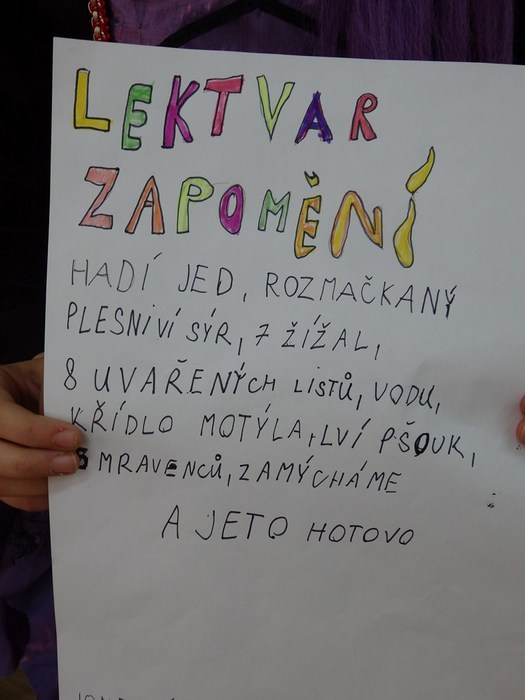 LEKTVAR
ZAPOMĚNÍ
HADÍ JED, ROZMAČKANÝ
PLESNIVÍ SÝR, 7 ŽÍŽAL,
8 UVAŘENÝCH LISTŮ, VODU,
KŘÍDLO MOTÝLA, LVÍ PŠOUK,
MRAVENCŮ, ZAMÝCHÁME
A JETO HOTOVO